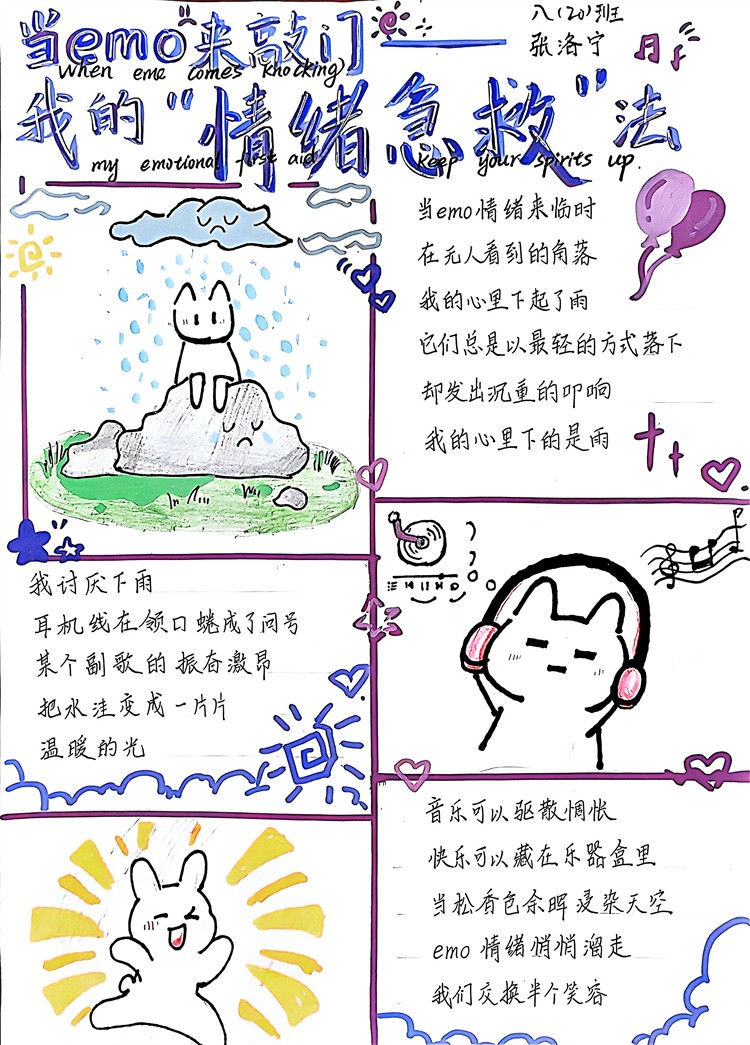 当emo来敲门
When eme comes knocking)
八(20)班
张洛宁
我的"情绪急救"法
my emotional first aid
Keep your spirits up.
当emo情绪来临时
在无人看到的角落
我的心里下起了雨
它们总是以最轻的方式落下
却发出沉重的叩响
我的心里下的是雨
我讨厌下雨
耳机线在领口蜷成了问号
某个副歌的振奋激昂
把水洼变成一片片
温暖的光
音乐可以驱散惆怅
快乐可以藏在乐器盒里
当松香色余晖浸染天空
emo 情绪悄悄溜走
我们交换半个笑容